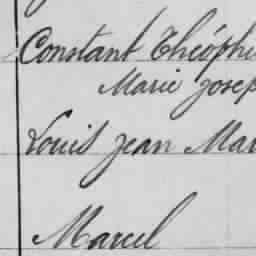 Constant Théophi
Marie Josep
Louis Jean Mar
Marcel